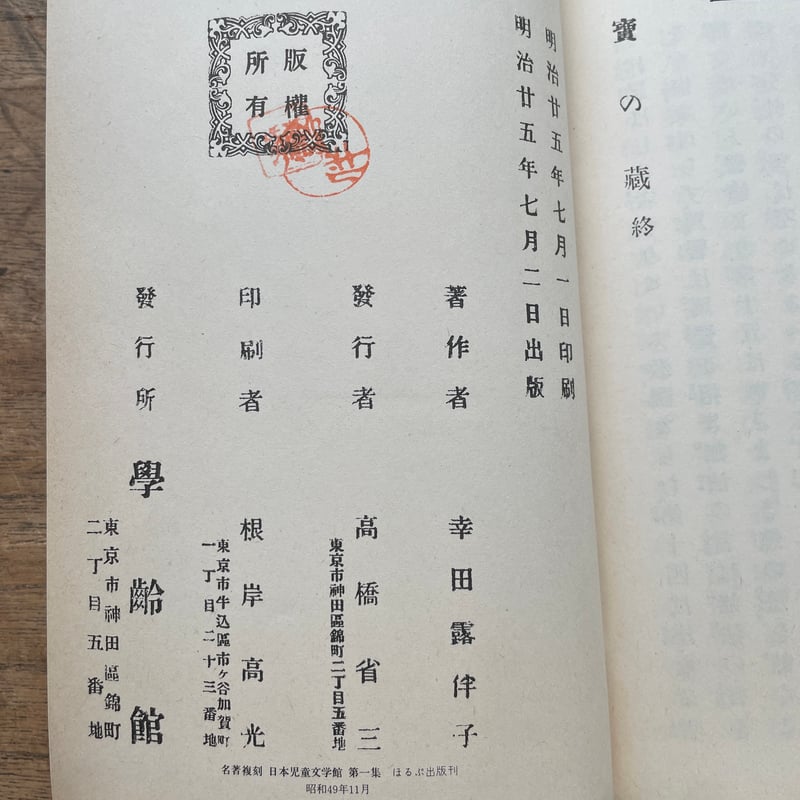 寶の藏終
明治廿五年七月一日印刷
明治廿五年七月二日出版
版權
所有
著作者 幸田露伴子
發行者 高橋省三
東京市神田區錦町二丁目五番地
印刷者 根岸高光
東京市牛込區市ヶ谷加賀町
一丁目二十三番地
發行所 學齡館
東京市神田區錦町
二丁目五番地
名著複刻 日本児童文学館 第一集 ほるぷ出版刊
昭和49年11月